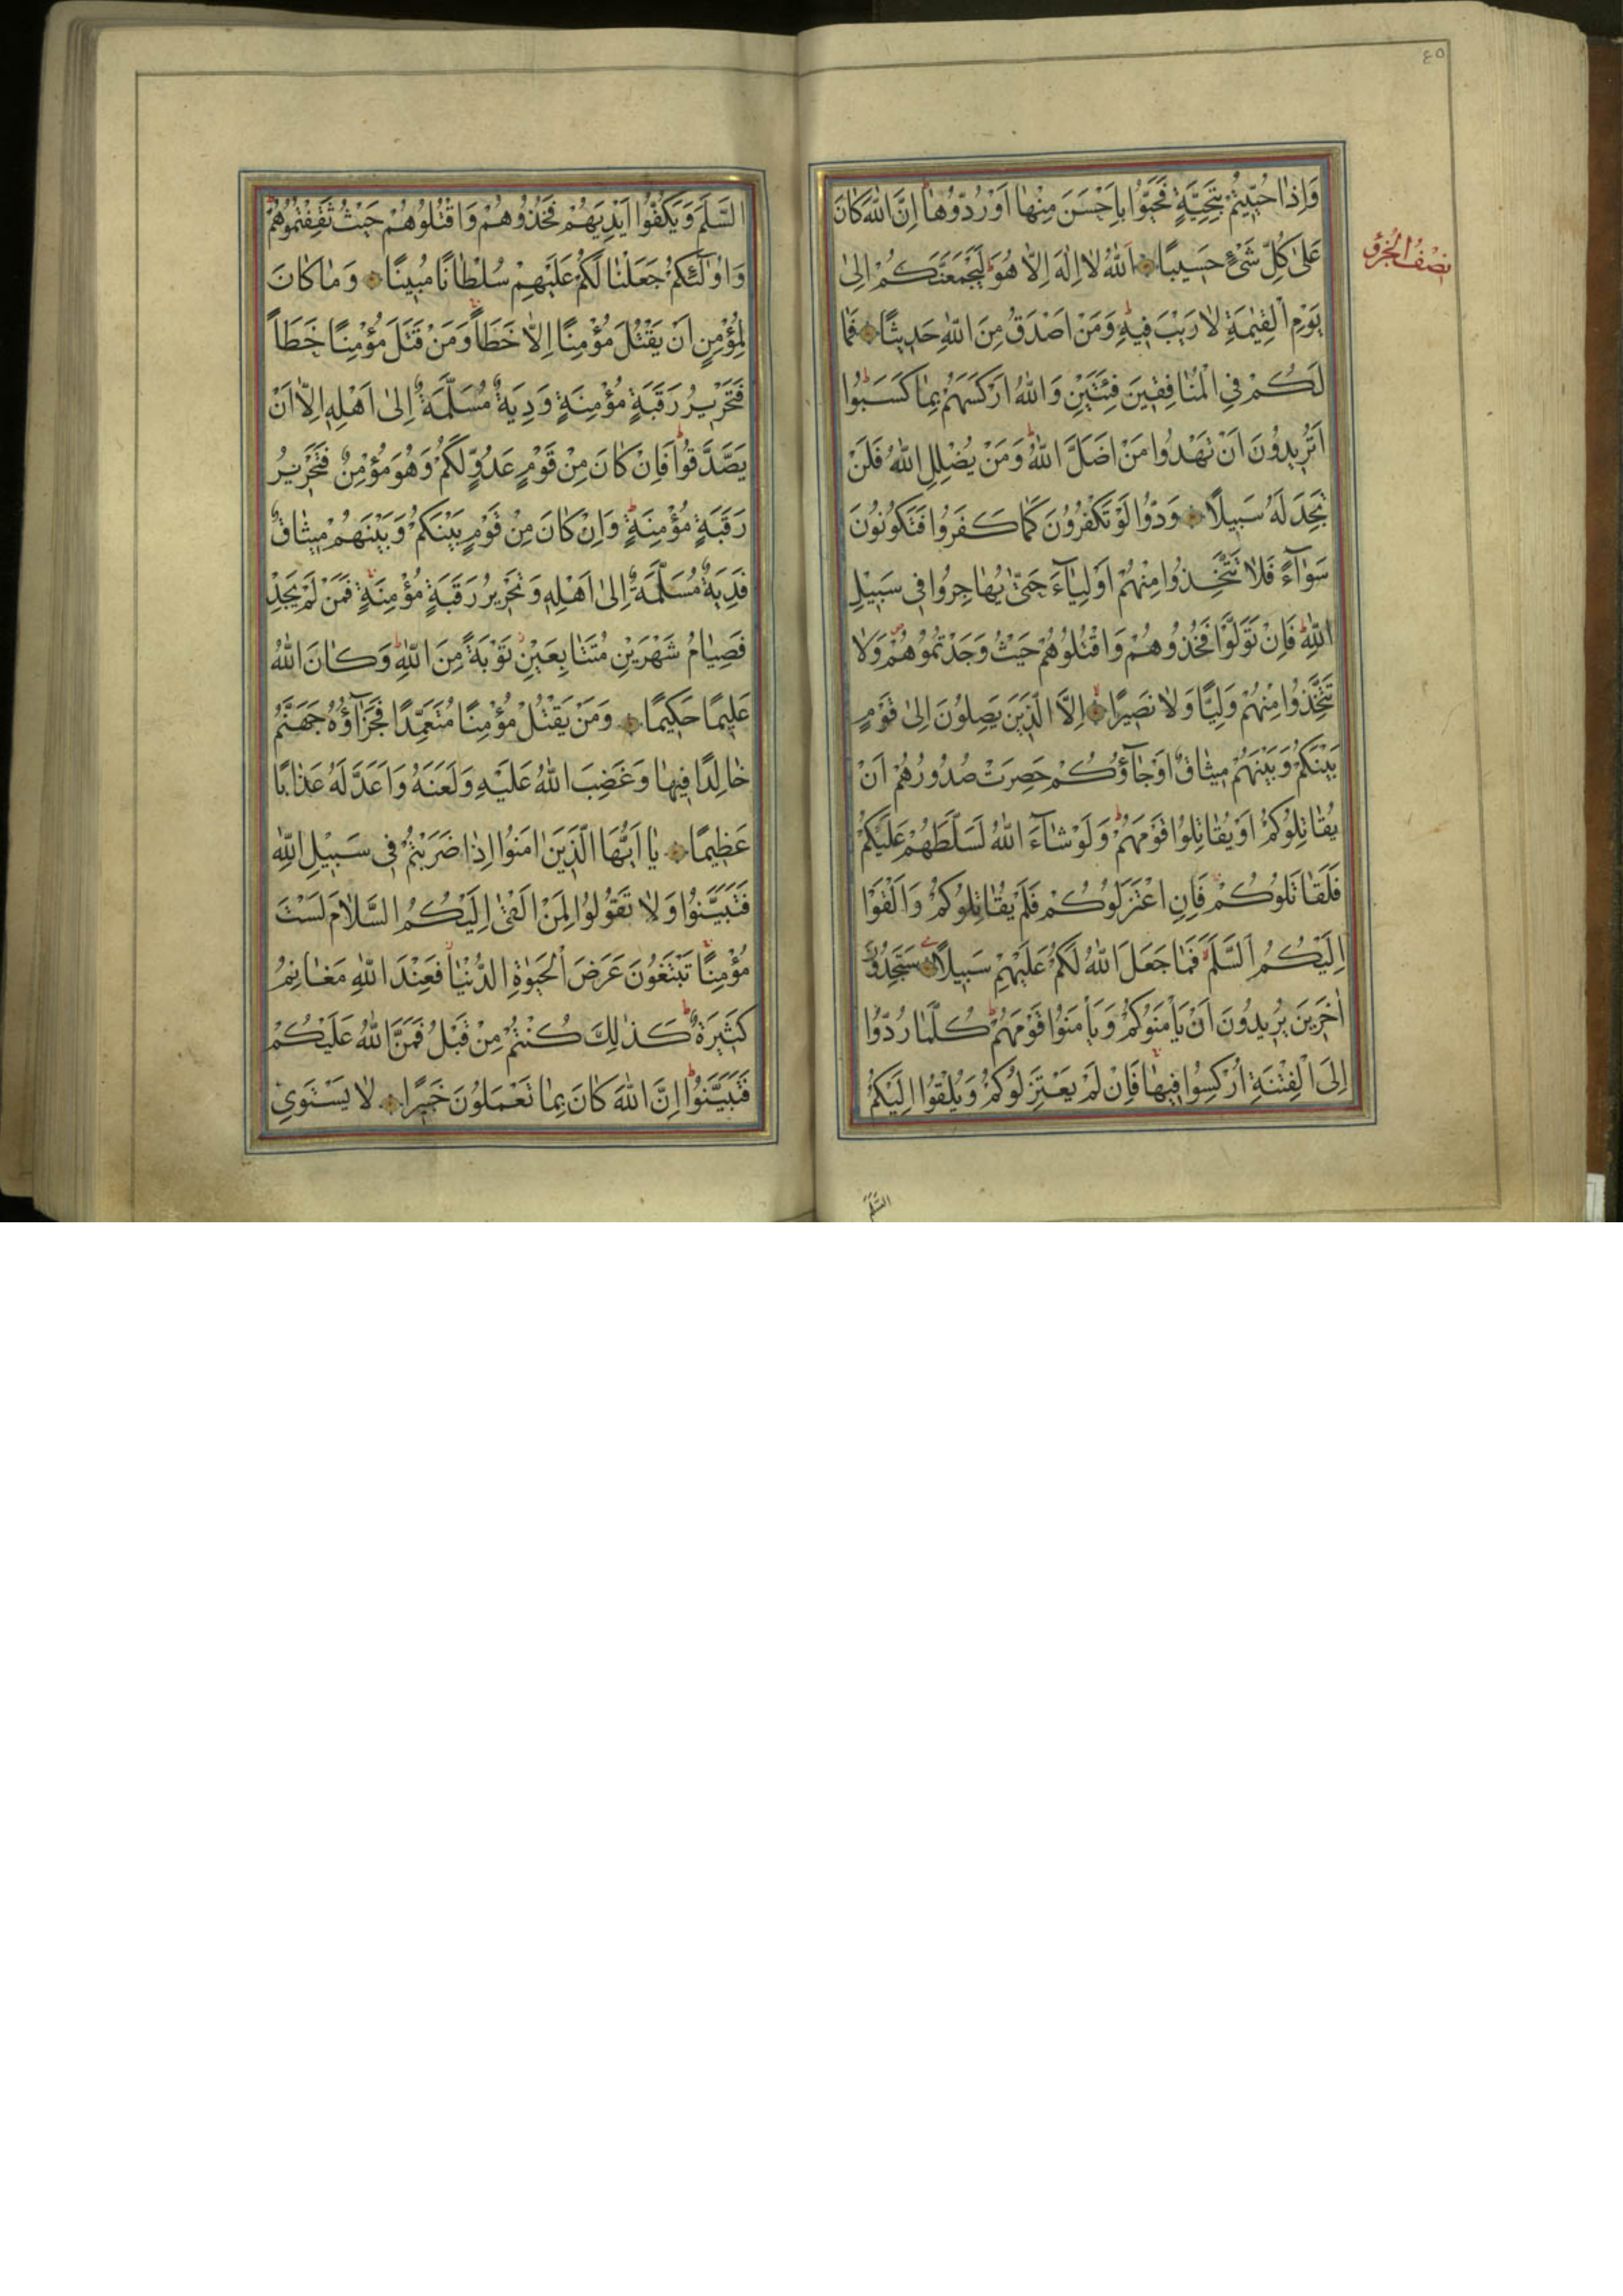 ٤٥
وَاِذَا حُيِّيتُمْ بِتَحِيَّةٍ فَحَيُّوا بِاَحْسَنَ مِنْهَا اَوْ رُدُّوهَا اِنَّ اللّٰهَ كَانَ
عَلٰى كُلِّ شَىْءٍ حَسِيبًا اَللّٰهُ لَا اِلٰهَ اِلَّا هُوَ لَيَجْمَعَنَّكُمْ اِلٰى
نصف الحزب
يَوْمِ الْقِيٰمَةِ لَا رَيْبَ فِيهِ وَمَنْ اَصْدَقُ مِنَ اللّٰهِ حَدِيثًا فَمَا
لَكُمْ فِي الْمُنَافِقِينَ فِئَتَيْنِ وَاللّٰهُ اَرْكَسَهُمْ بِمَا كَسَبُوا
اَتُرِيدُونَ اَنْ تَهْدُوا مَنْ اَضَلَّ اللّٰهُ وَمَنْ يُضْلِلِ اللّٰهُ فَلَنْ
تَجِدَ لَهُ سَبِيلًا وَدُّوا لَوْ تَكْفُرُونَ كَمَا كَفَرُوا فَتَكُونُونَ
سَوَآءً فَلَا تَتَّخِذُوا مِنْهُمْ اَوْلِيَآءَ حَتّٰى يُهَاجِرُوا فِى سَبِيلِ
اللّٰهِ فَاِنْ تَوَلَّوْا فَخُذُوهُمْ وَاقْتُلُوهُمْ حَيْثُ وَجَدْتُمُوهُمْ وَلَا
تَتَّخِذُوا مِنْهُمْ وَلِيًّا وَلَا نَصِيرًا اِلَّا الَّذِينَ يَصِلُونَ اِلٰى قَوْمٍ
بَيْنَكُمْ وَبَيْنَهُمْ مِيثَاقٌ اَوْ جَآؤُكُمْ حَصِرَتْ صُدُورُهُمْ اَنْ
يُقَاتِلُوكُمْ اَوْ يُقَاتِلُوا قَوْمَهُمْ وَلَوْ شَآءَ اللّٰهُ لَسَلَّطَهُمْ عَلَيْكُمْ
فَلَقَاتَلُوكُمْ فَاِنِ اعْتَزَلُوكُمْ فَلَمْ يُقَاتِلُوكُمْ وَاَلْقَوْا
اِلَيْكُمُ السَّلَمَ فَمَا جَعَلَ اللّٰهُ لَكُمْ عَلَيْهِمْ سَبِيلًا سَتَجِدُونَ
اٰخَرِينَ يُرِيدُونَ اَنْ يَأْمَنُوكُمْ وَيَأْمَنُوا قَوْمَهُمْ كُلَّمَا رُدُّوا
اِلَى الْفِتْنَةِ اُرْكِسُوا فِيهَا فَاِنْ لَمْ يَعْتَزِلُوكُمْ وَيُلْقُوا اِلَيْكُمُ
السَّلَمَ
السَّلَمَ وَيَكُفُّوا اَيْدِيَهُمْ فَخُذُوهُمْ وَاقْتُلُوهُمْ حَيْثُ ثَقِفْتُمُوهُمْ
وَاُولٰٓئِكُمْ جَعَلْنَا لَكُمْ عَلَيْهِمْ سُلْطَانًا مُبِينًا وَمَا كَانَ
لِمُؤْمِنٍ اَنْ يَقْتُلَ مُؤْمِنًا اِلَّا خَطَأً وَمَنْ قَتَلَ مُؤْمِنًا خَطَأً
فَتَحْرِيرُ رَقَبَةٍ مُؤْمِنَةٍ وَدِيَةٌ مُسَلَّمَةٌ اِلٰى اَهْلِهِ اِلَّا اَنْ
يَصَّدَّقُوا فَاِنْ كَانَ مِنْ قَوْمٍ عَدُوٍّ لَكُمْ وَهُوَ مُؤْمِنٌ فَتَحْرِيرُ
رَقَبَةٍ مُؤْمِنَةٍ وَاِنْ كَانَ مِنْ قَوْمٍ بَيْنَكُمْ وَبَيْنَهُمْ مِيثَاقٌ
فَدِيَةٌ مُسَلَّمَةٌ اِلٰى اَهْلِهِ وَتَحْرِيرُ رَقَبَةٍ مُؤْمِنَةٍ فَمَنْ لَمْ يَجِدْ
فَصِيَامُ شَهْرَيْنِ مُتَتَابِعَيْنِ تَوْبَةً مِنَ اللّٰهِ وَكَانَ اللّٰهُ
عَلِيمًا حَكِيمًا وَمَنْ يَقْتُلْ مُؤْمِنًا مُتَعَمِّدًا فَجَزَآؤُهُ جَهَنَّمُ
خَالِدًا فِيهَا وَغَضِبَ اللّٰهُ عَلَيْهِ وَلَعَنَهُ وَاَعَدَّ لَهُ عَذَابًا
عَظِيمًا يَا اَيُّهَا الَّذِينَ اٰمَنُوا اِذَا ضَرَبْتُمْ فِى سَبِيلِ اللّٰهِ
فَتَبَيَّنُوا وَلَا تَقُولُوا لِمَنْ اَلْقٰى اِلَيْكُمُ السَّلَامَ لَسْتَ
مُؤْمِنًا تَبْتَغُونَ عَرَضَ الْحَيٰوةِ الدُّنْيَا فَعِنْدَ اللّٰهِ مَغَانِمُ
كَثِيرَةٌ كَذٰلِكَ كُنْتُمْ مِنْ قَبْلُ فَمَنَّ اللّٰهُ عَلَيْكُمْ
فَتَبَيَّنُوا اِنَّ اللّٰهَ كَانَ بِمَا تَعْمَلُونَ خَبِيرًا لَا يَسْتَوِى